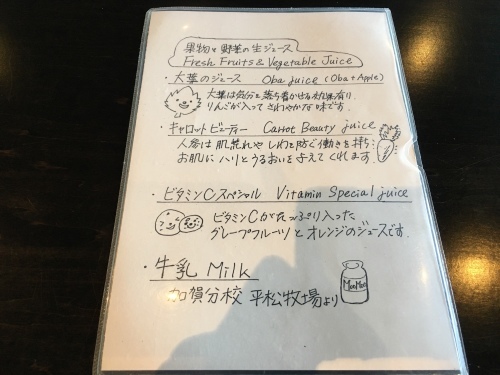 果物と野菜の生ジュース
Fresh Fruits & Vegetable Juice
・大葉のジュース Oba juice (Oba+Apple)
大葉は気分を落ち着かせる効果有り
りんごが入ってさわやかな味です.
・キャロットビューティー Carrot Beauty juice
人参は肌荒れやしわを防ぐ働きを持ち
お肌にハリとうるおいを与えてくれます.
・ビタミンCスペシャル Vitamin Special juice
ビタミンCがたっぷり入った
グレープフルーツとオレンジのジュースです.
・牛乳 Milk
加賀分校 平松牧場より
MooMoo